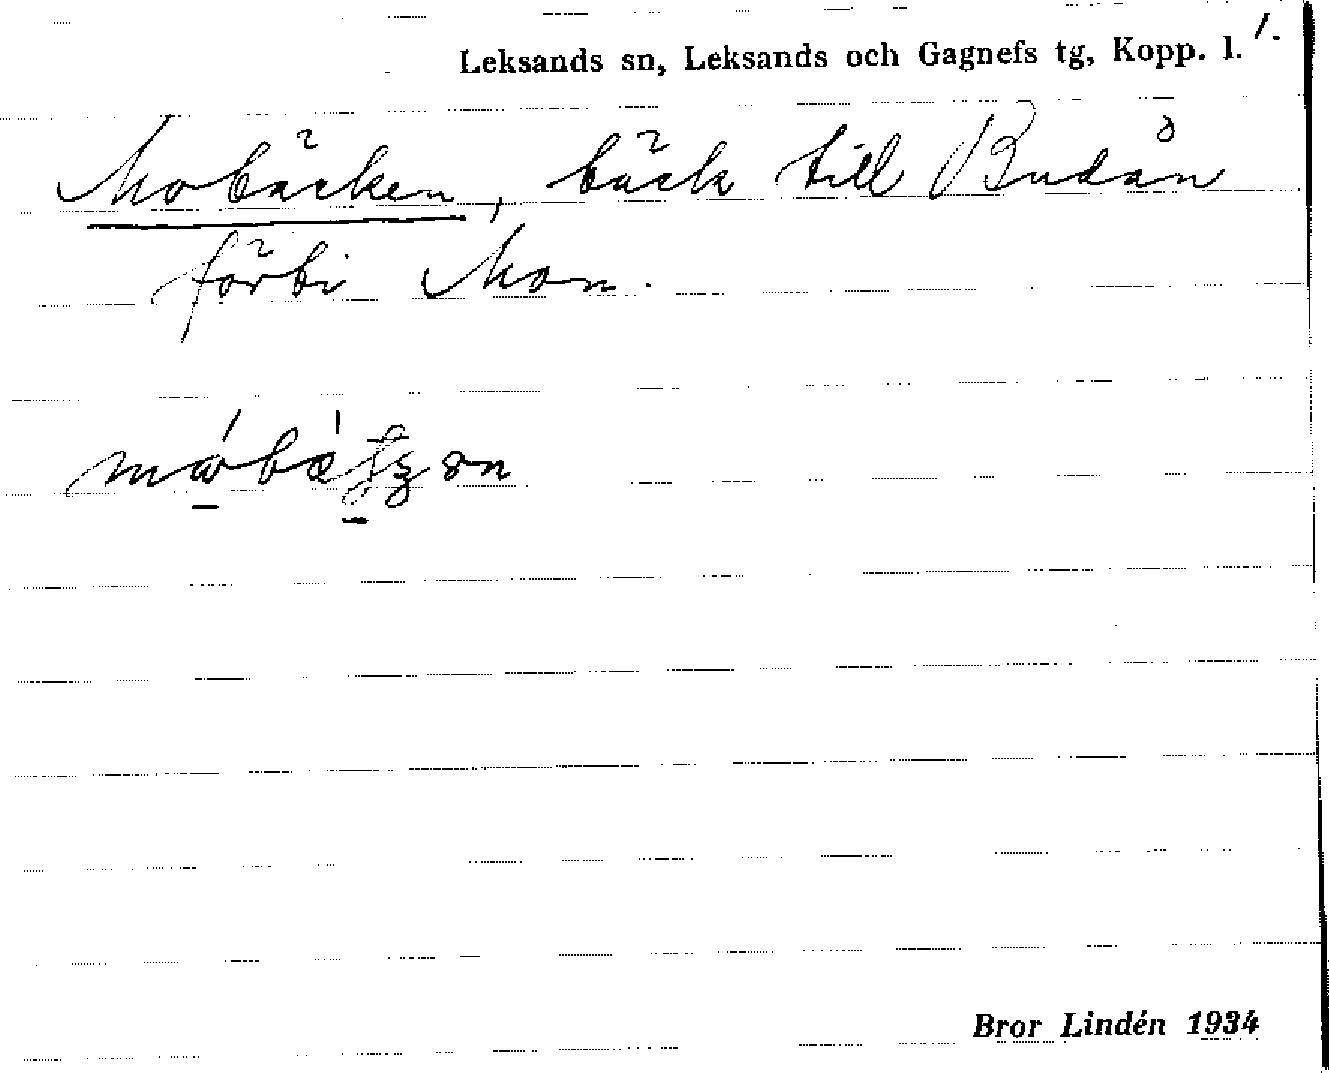 Leksands sn, Leksands och Gagnefs tg, Kopp. l. 1.
Mobäcken, bäck till Budån
förbi Mon.
Bror Lindén 1934